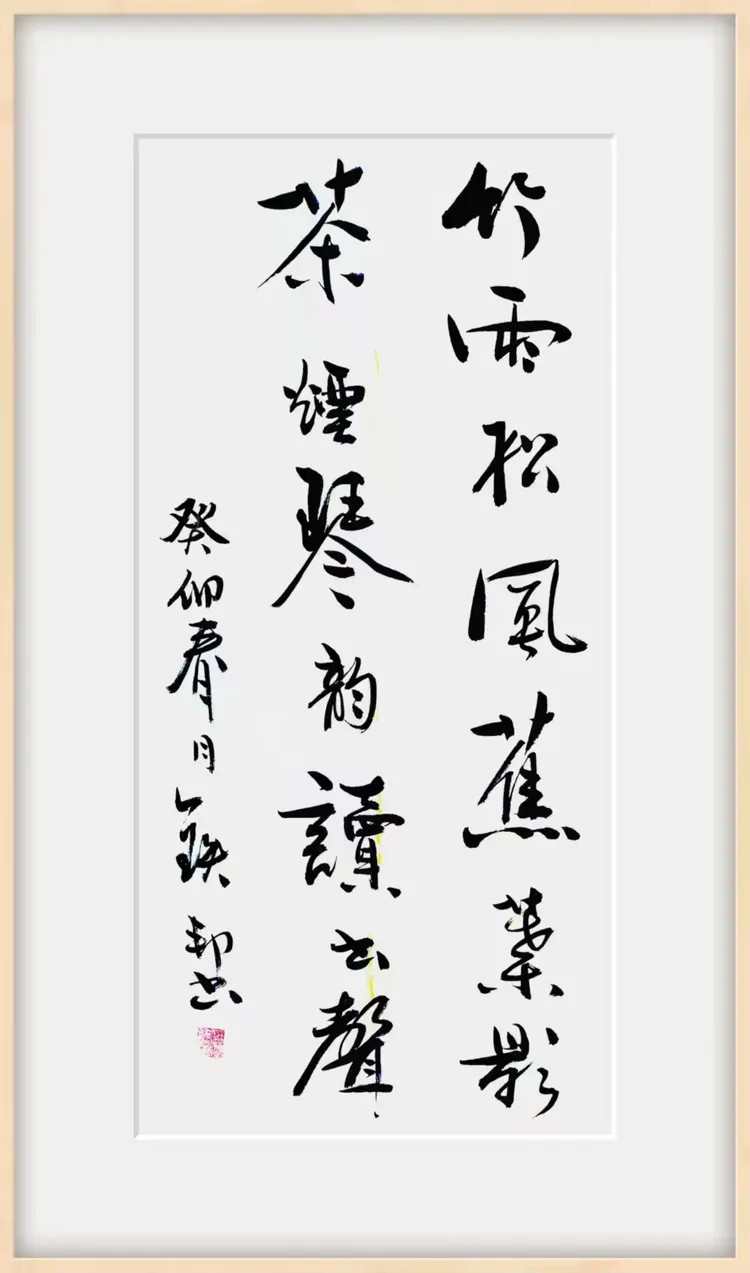 竹雨松風蕉葉影
茶煙琴韻讀書聲
癸卯春月書